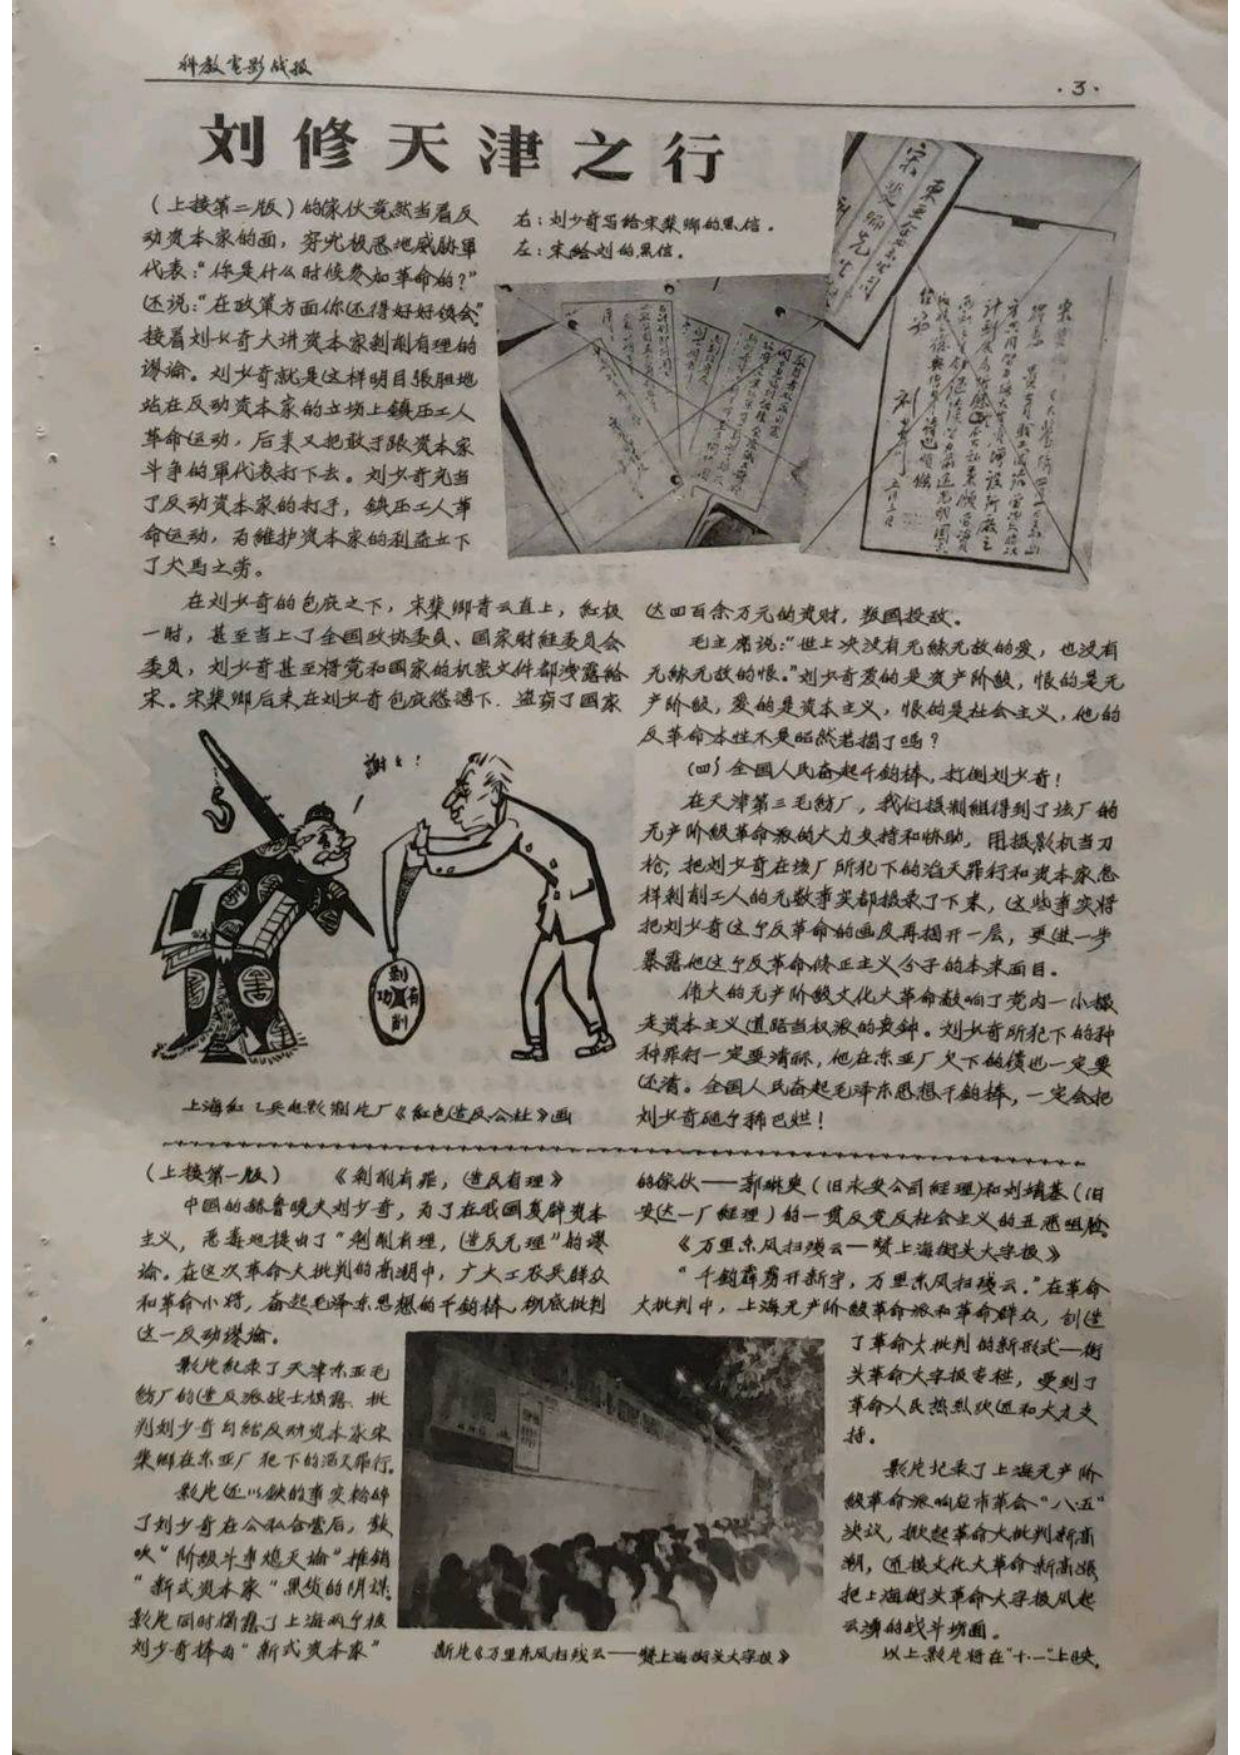 科教电影战报
·3·
刘修天津之行
（上接第二版）的傢伙竟然当着反
动资本家的面，穷凶极恶地威胁軍
代表：“你是什么时候参加革命的？”
还说：“在政策方面你还得好好领会”
接着刘少奇大讲资本家剥削有理的
谬论。刘少奇就是这样明目張胆地
站在反动资本家的立场上鎮压工人
革命运动，后来又把敢于跟资本家
斗争的軍代表打下去。刘少奇充当
了反动资本家的打手，鎮压工人革
命运动，为維护资本家的利益立下
了犬馬之劳。
右：刘少奇写给宋棐卿的黑信。
左：宋给刘的黑信。
在刘少奇的包庇之下，宋棐卿青云直上，紅极
一时，甚至当上了全国政协委员、国家财经委员会
委员，刘少奇甚至将党和國家的机密文件都洩露給
宋。宋棐卿后来在刘少奇包庇慫慂下．盗窃了國家
謝々！
剥削有功
上海紅工兵电影制片厂《紅色造反公社》画
达四百余万元的资财，叛國投敌。
毛主席说：“世上决没有无緣无故的爱，也没有
无緣无故的恨。”刘少奇爱的是资产阶級，恨的是无
产阶級，爱的是资本主义，恨的是社会主义，他的
反革命本性不是昭然若揭了吗？
（四）全國人民奋起千鈞棒，打倒刘少奇！
在天津第三毛紡厂，我们摄制組得到了该厂的
无产阶級革命派的大力支持和协助，用摄影机当刀
枪，把刘少奇在该厂所犯下的滔天罪行和资本家怎
样剥削工人的无数事实都摄录了下来，这些事实将
把刘少奇这个反革命的画皮再揭开一层，更进一步
暴露他这个反革命修正主义分子的本来面目。
偉大的无产阶級文化大革命敲响了党内一小撮
走资本主义道路当权派的丧鐘。刘少奇所犯下的种
种罪行一定要清祘，他在东亚厂欠下的債也一定要
还清。全国人民奋起毛泽东思想千鈞棒，一定会把
刘少奇砸个稀巴烂！
（上接第一版）　《剥削有罪，造反有理》
中國的赫鲁晓夫刘少奇，为了在我國复辟资本
主义，恶毒地提出了“剥削有理，造反无理”的谬
论。在这次革命大批判的高潮中，广大工农兵群众
和革命小将，奋起毛泽东思想的千鈞棒，彻底批判
这一反动谬论。
影片紀录了天津东亚毛
紡厂的造反派战士揭露、批
判刘少奇勾結反动资本家宋
棐卿在东亚厂犯下的滔天罪行。
影片还以鉄的事实粉碎
了刘少奇在公私合营后，鼓
吹“阶級斗争熄灭論”推销
“新式资本家”黑货的阴謀。
影片同时揭露了上海两个被
刘少奇捧为“新式资本家”
新片《万里东风扫残云——贊上海街头大字报》
的傢伙——郭琳爽（旧永安公司經理）和刘靖基（旧
安达一厂經理）的一贯反党反社会主义的丑恶咀脸。
《万里东风扫残云——贊上海街头大字报》
“千鈞霹雳开新宇，万里东风扫残云。”在革命
大批判中，上海无产阶級革命派和革命群众，创造
了革命大批判的新形式—街
头革命大字报专栏，受到了
革命人民热烈欢迎和大力支
持。
影片纪录了上海无产阶
級革命派响应市革会“八·五”
决议，掀起革命大批判新高
潮，迎接文化大革命新高漲，
把上海街头革命大字报风起
云涌的战斗场面。
以上影片将在“十·一”上映。